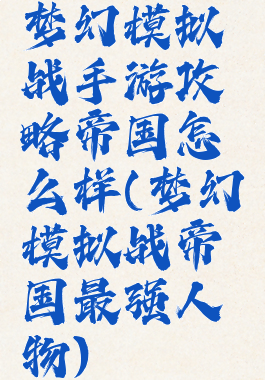 梦幻模拟
战手游攻
略帝国怎
么样(梦幻
模拟战帝
国最强人
物)